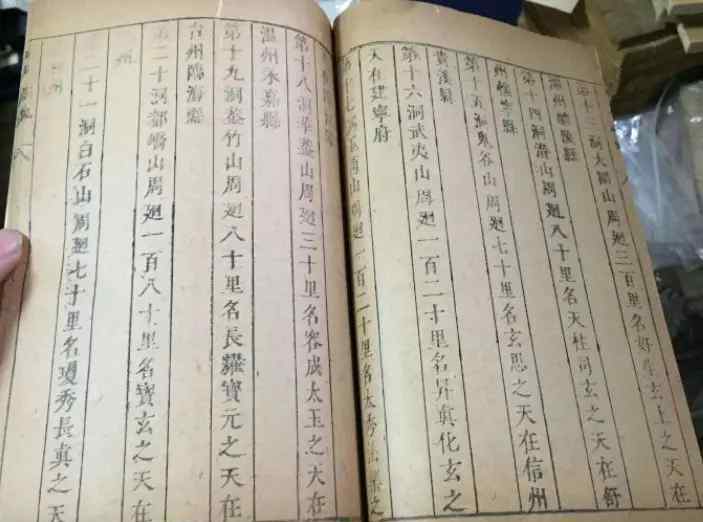 第十三洞大圍山周廻三百里名好生玄上之天在
潭州醴陵縣
第十四洞潛山周廻八十里名天柱司玄之天在舒
州懷寧縣
第十五洞鬼谷山周廻七十里名玄思之天在信州
貴溪縣
第十六洞武夷山周廻一百二十里名昇眞化玄之
天在建寧府
山周廻一百二十里名太秀法樂之
第十八洞華蓋山周廻三十里名容成太玉之天在
溫州永嘉縣
第十九洞蓋竹山周廻八十里名長耀寶元之天在
台州臨海縣
第二十洞都嶠山周廻一百八十里名寶玄之天在
州
二十一洞白石山周廻七十里名瓊秀長眞之天
州
八